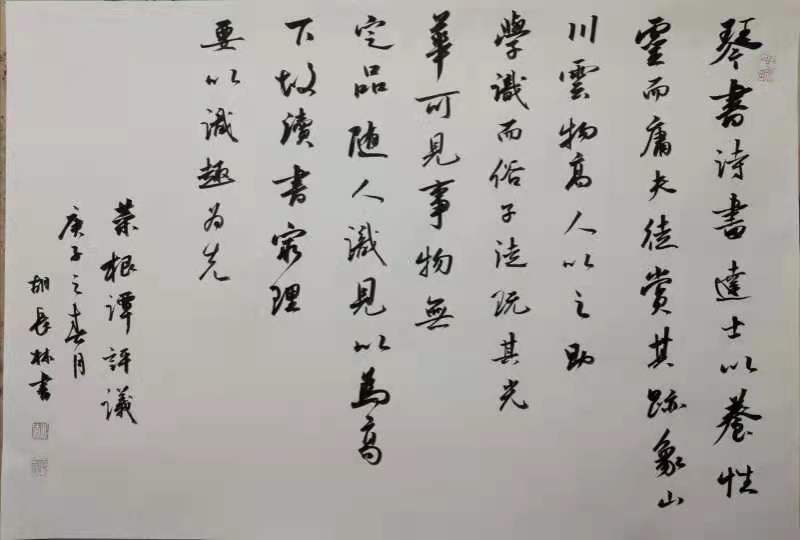 琴書詩畫達士以養性
靈而庸夫徒賞其跡象山
川雲物高人以之助
學識而俗子徒玩其光
華可見事物無
定品随人識見以為高
下故讀書窮理
要以識趣为先
菜根譚評議
庚子之春月
胡長林書